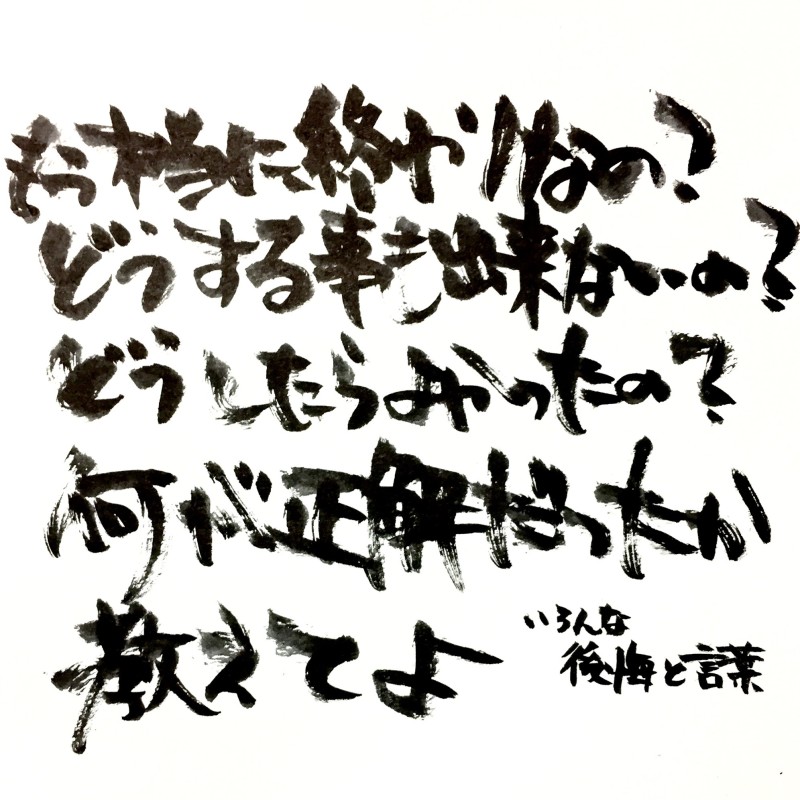 もう本当に終わりなの?
どうする事も出来ないの?
どうしたらよかったの?
何が正解だったか
教えてよ
いろんな
後悔と言葉